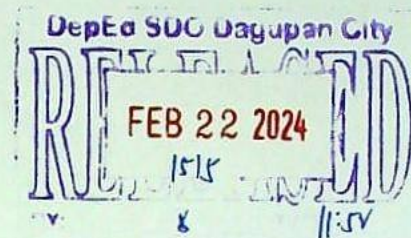 DepEd SDO Dagupan City
RELEASED
FEB 22 2024
1515